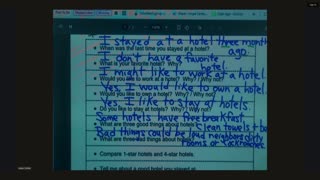 I stayed at a hotel three months
When was the last time you stayed at a hotel?
ago.
I don't have a favorite
What is your favorite hotel? Why?
hotel.
I might like to work at a hotel
Would you like to work at a hotel? Why / Why not?
Yes, I would like to own a hotel
Would you like to own a hotel? Why / Why not?
Yes, I like to stay at hotels
Do you like to stay at hotels? Why? / Why not?
Some hotels have free breakfast,
What are three good things about hotels?
clean towels +
Bad things could be loud neighbors, dirty
What are three bad things about hotels?
rooms or
Compare 1-star hotels and 4-star hotels.
Tell me about a good hotel you stayed at.